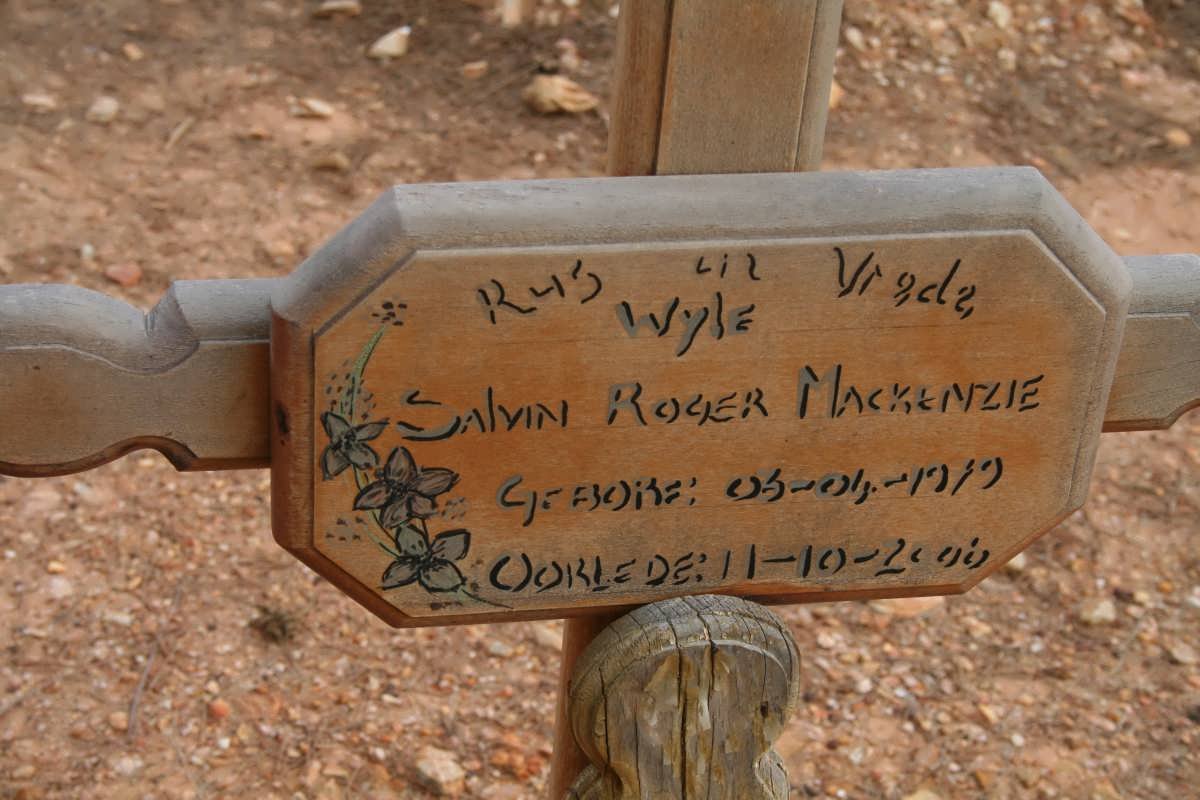 Rus in Vrede
Wyle
Salvin Roger Mackenzie
Gebore: 03-04-1979
Oorlede: 11-10-2006